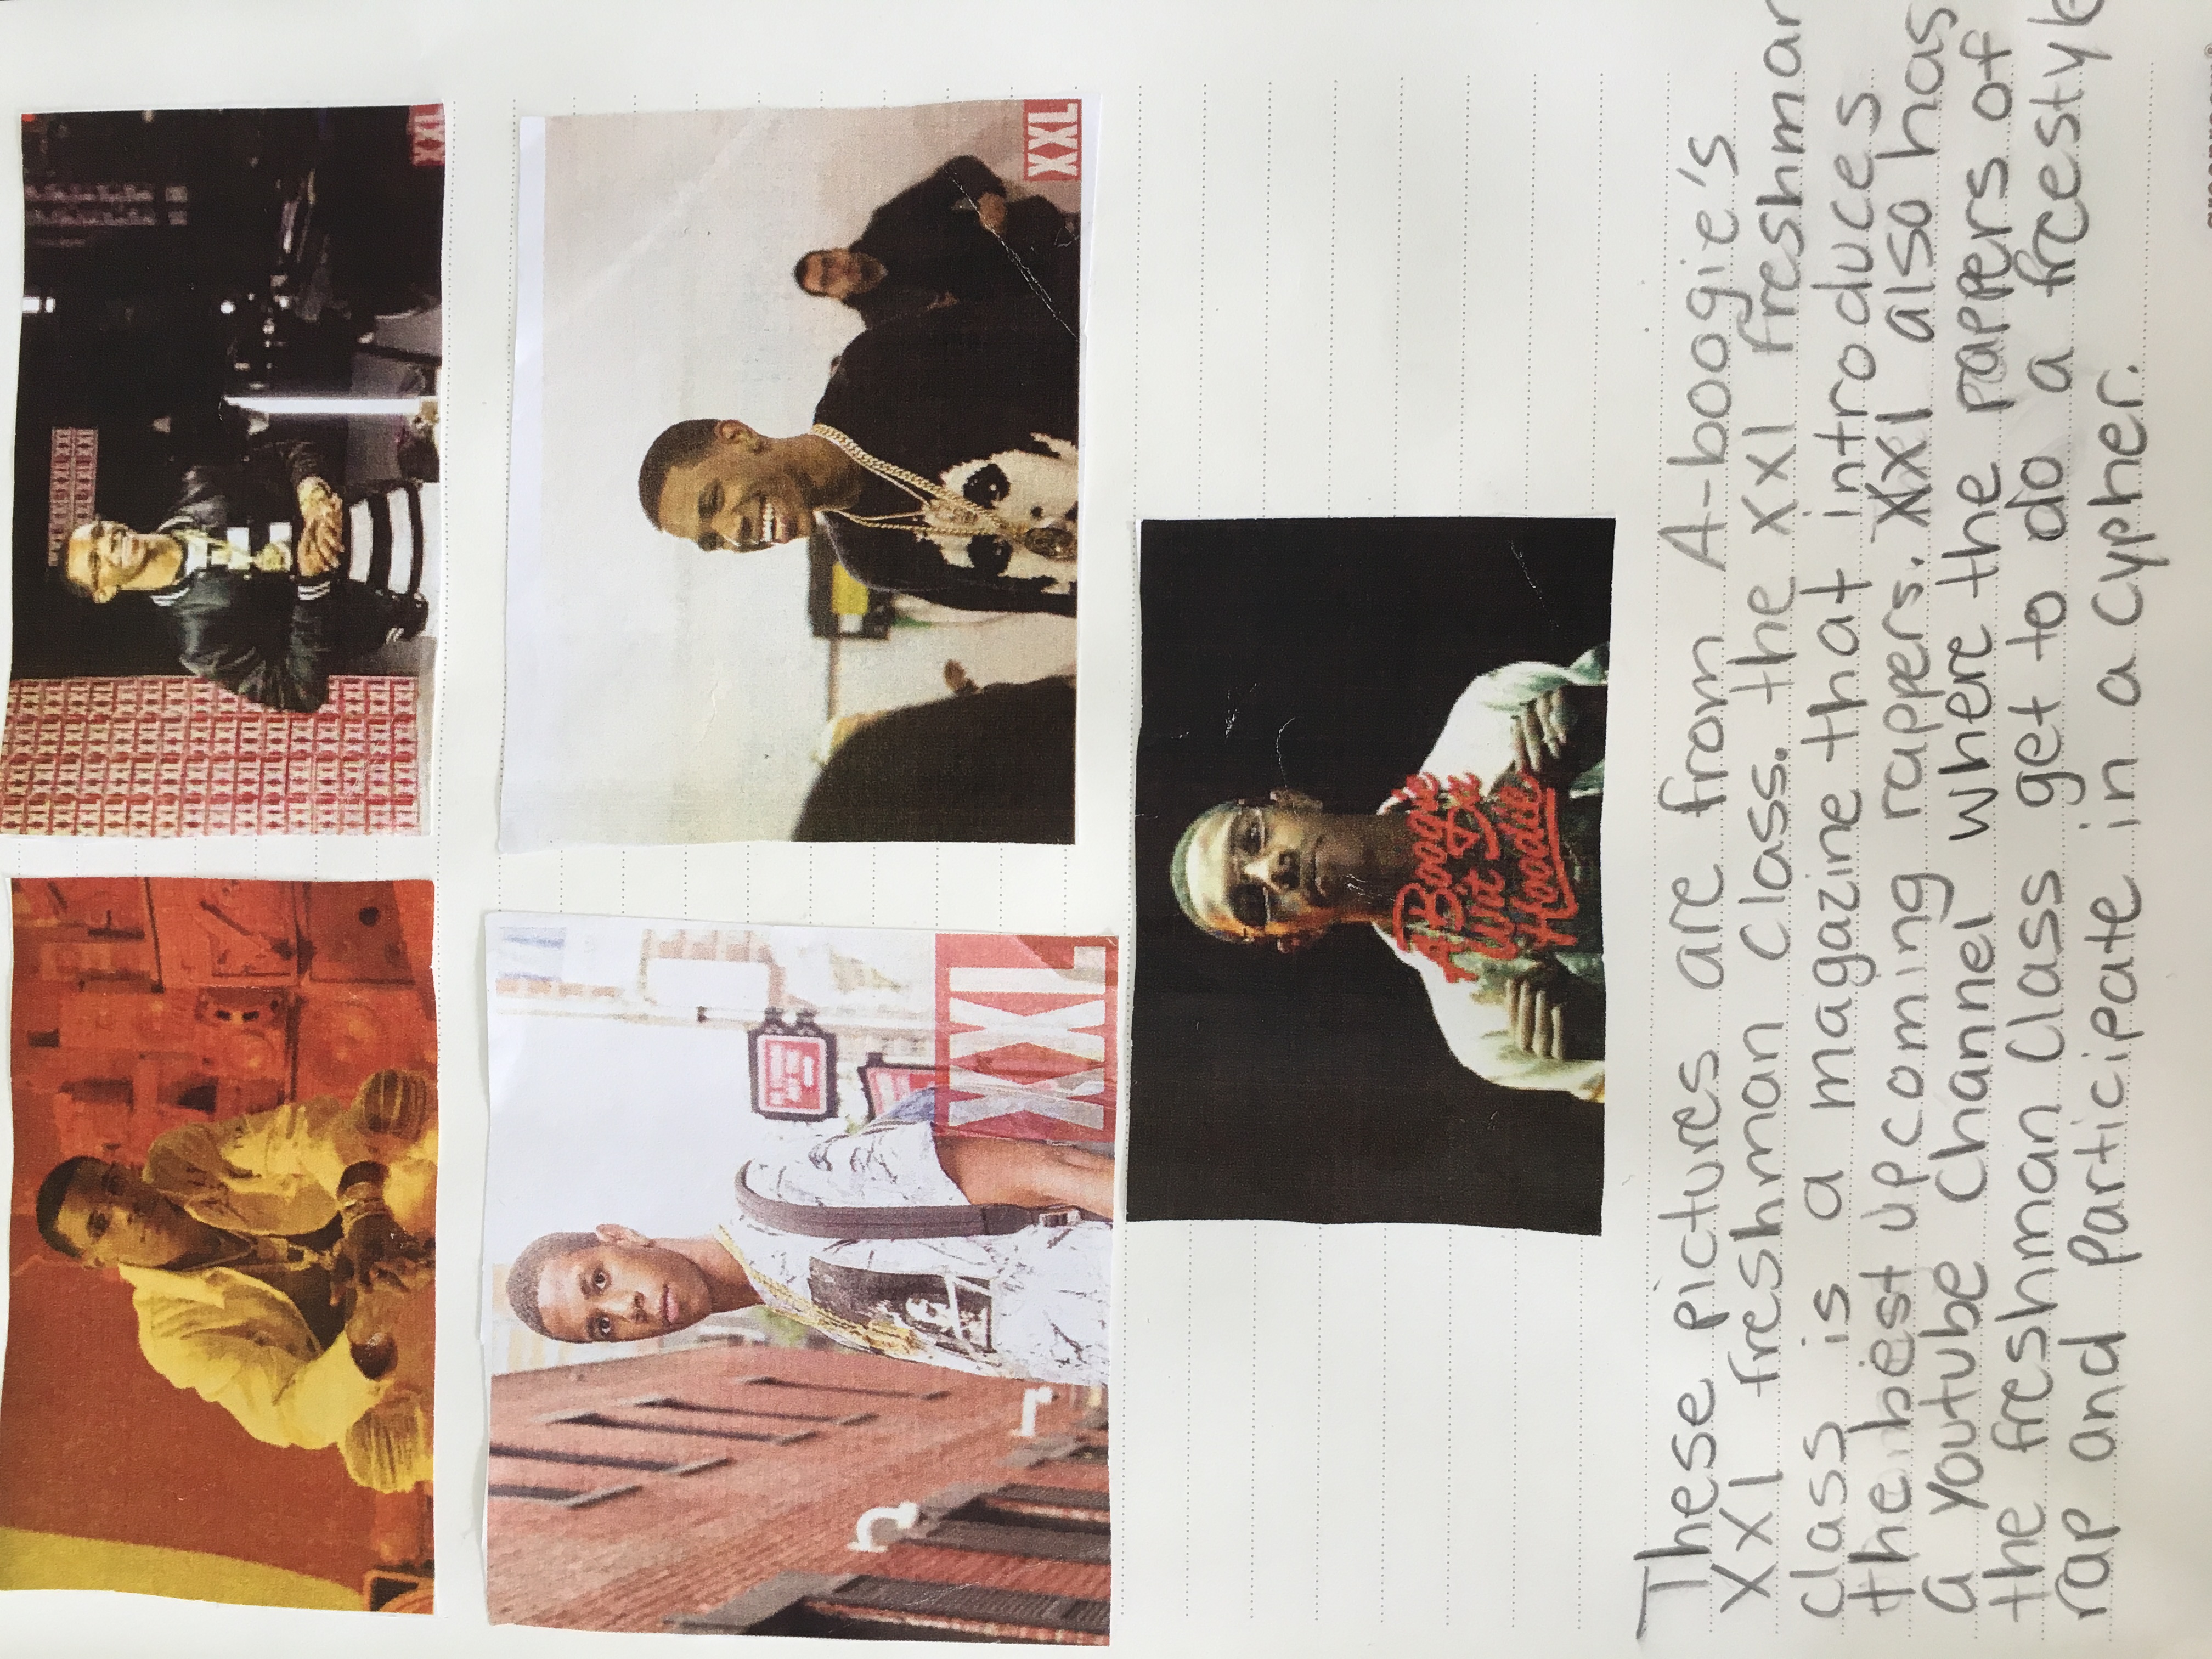 XXL XXL XXL XXL
XXL XXL XXL XXL
XXL
XXL
XXL
A Boogie
Wit Da
Hoodie
These pictures are from A-boogie's
XXl freshman class. the XXl freshman
class is a magazine that introduces
the best upcoming rappers. XXl also has
a youtube channel where the rappers of
the freshman class get to do a freestyle
rap and participate in a cypher.